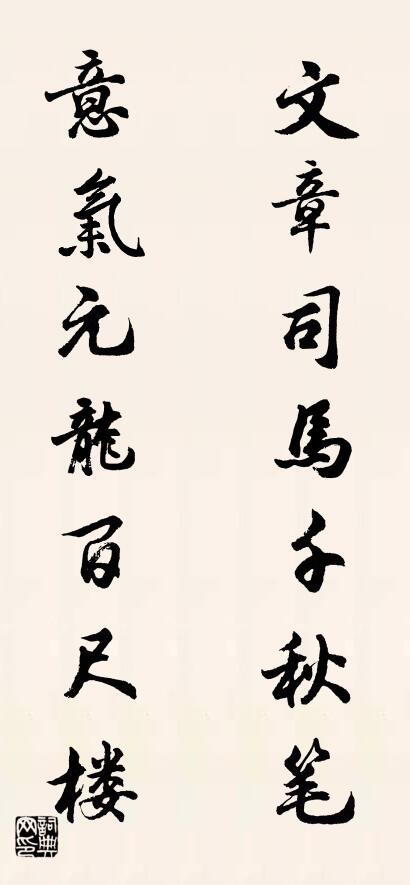 文章司馬千秋笔
意氣元龍百尺楼
詞典
网印